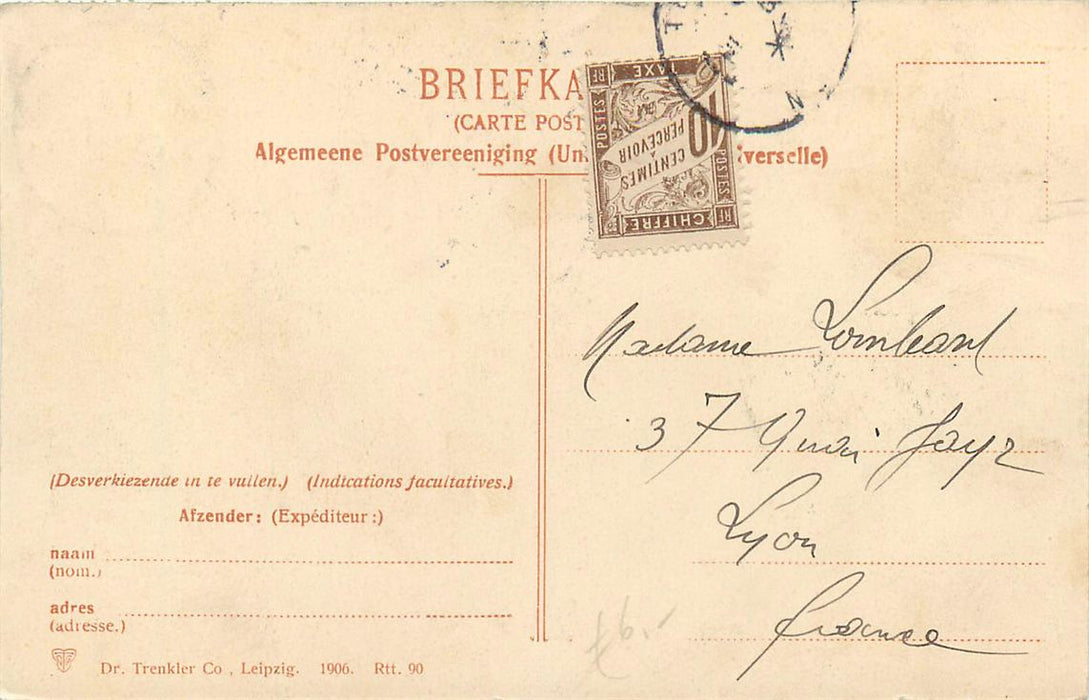 BRIEFKA
(CARTE POST
Algemeene Postvereeniging (Un verselle)
RF TAXE
10
CENTIMES
A
PERCEVOIR
POSTES
POSTES
RF CHIFFRE
Madame Lombard
37 Quai Jayr
Lyon
france
(Desverkiezende in te vullen.) (Indications facultatives.)
Afzender: (Expéditeur:)
naam
(nom.)
adres
(adresse.)
Dr. Trenkler Co., Leipzig. 1906. Rtt. 90